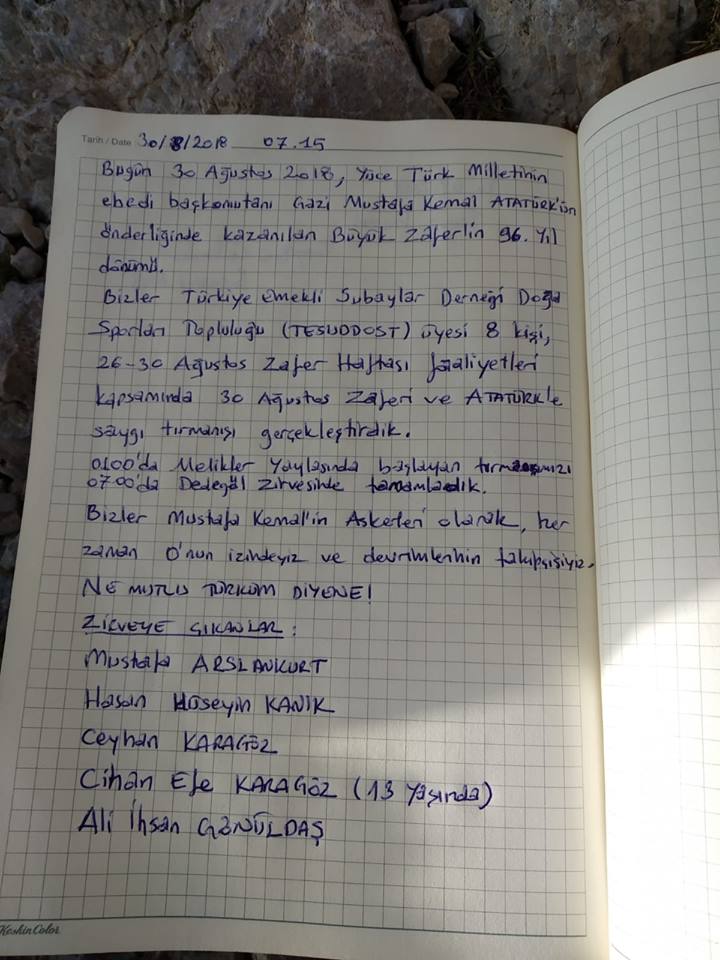 Tarih / Date 30/8/2018 07.15
Bugün 30 Ağustos 2018, Yüce Türk Milletinin
ebedi başkomutanı Gazi Mustafa Kemal ATATÜRK'ün
önderliğinde kazanılan Büyük Zafer'in 96. Yıl
dönümü.
Bizler Türkiye Emekli Subaylar Derneği Doğa
Sporları Topluluğu (TESUDDOST) üyesi 8 kişi,
26-30 Ağustos Zafer Haftası faaliyetleri
kapsamında 30 Ağustos Zaferi ve ATATÜRK'e
saygı tırmanışı gerçekleştirdik.
0100'da Melikler Yaylasında başlayan tırmanışımızı
0700'da Dedegöl Zirvesinde tamamladık.
Bizler Mustafa Kemal'in Askerleri olarak, her
zaman O'nun izindeyiz ve devrimlerinin takipçisiyiz.
NE MUTLU TÜRKÜM DİYENE!
ZİRVEYE ÇIKANLAR :
Mustafa ARSLANKURT
Hasan Hüseyin KANIK
Ceyhan KARAGÖZ
Cihan Efe KARAGÖZ (13 Yaşında)
Ali İhsan GÖNÜLDAŞ
KeskinColor